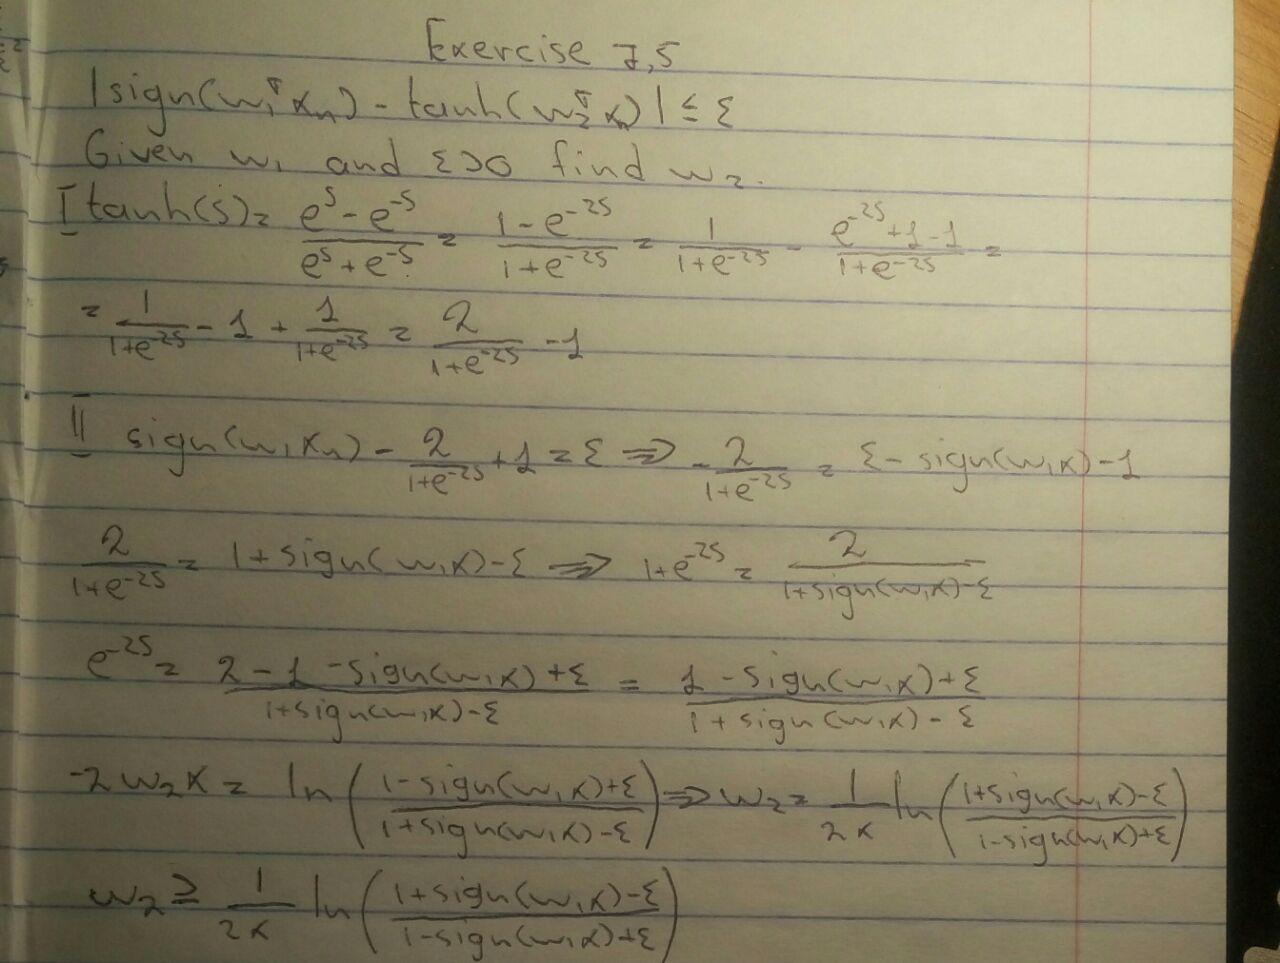 Exercise 7,5
|sign(w₁ᵀxₙ) - tanh(w₂ᵀxₙ)| ≤ ε
Given w₁ and ε>0 find w₂.
I tanh(s) = (e^s - e^-s)/(e^s + e^-s) = (1 - e^-2s)/(1 + e^-2s) = 1/(1+e^-2s) - (e^-2s + 1 - 1)/(1+e^-2s) =
= 1/(1+e^-2s) - 1 + 1/(1+e^-2s) = 2/(1+e^-2s) - 1
II sign(w₁xₙ) - 2/(1+e^-2s) + 1 = ε ⇒ - 2/(1+e^-2s) = ε - sign(w₁x) - 1
2/(1+e^-2s) = 1 + sign(w₁x) - ε ⇒ 1+e^-2s = 2/(1+sign(w₁x)-ε)
e^-2s = (2 - 1 - sign(w₁x) + ε)/(1+sign(w₁x)-ε) = (1 - sign(w₁x) + ε)/(1 + sign(w₁x) - ε)
-2w₂x = ln((1-sign(w₁x)+ε)/(1+sign(w₁x)-ε)) ⇒ w₂ = 1/2x ln((1+sign(w₁x)-ε)/(1-sign(w₁x)+ε))
w₂ ≥ 1/2x ln((1+sign(w₁x)-ε)/(1-sign(w₁x)+ε))